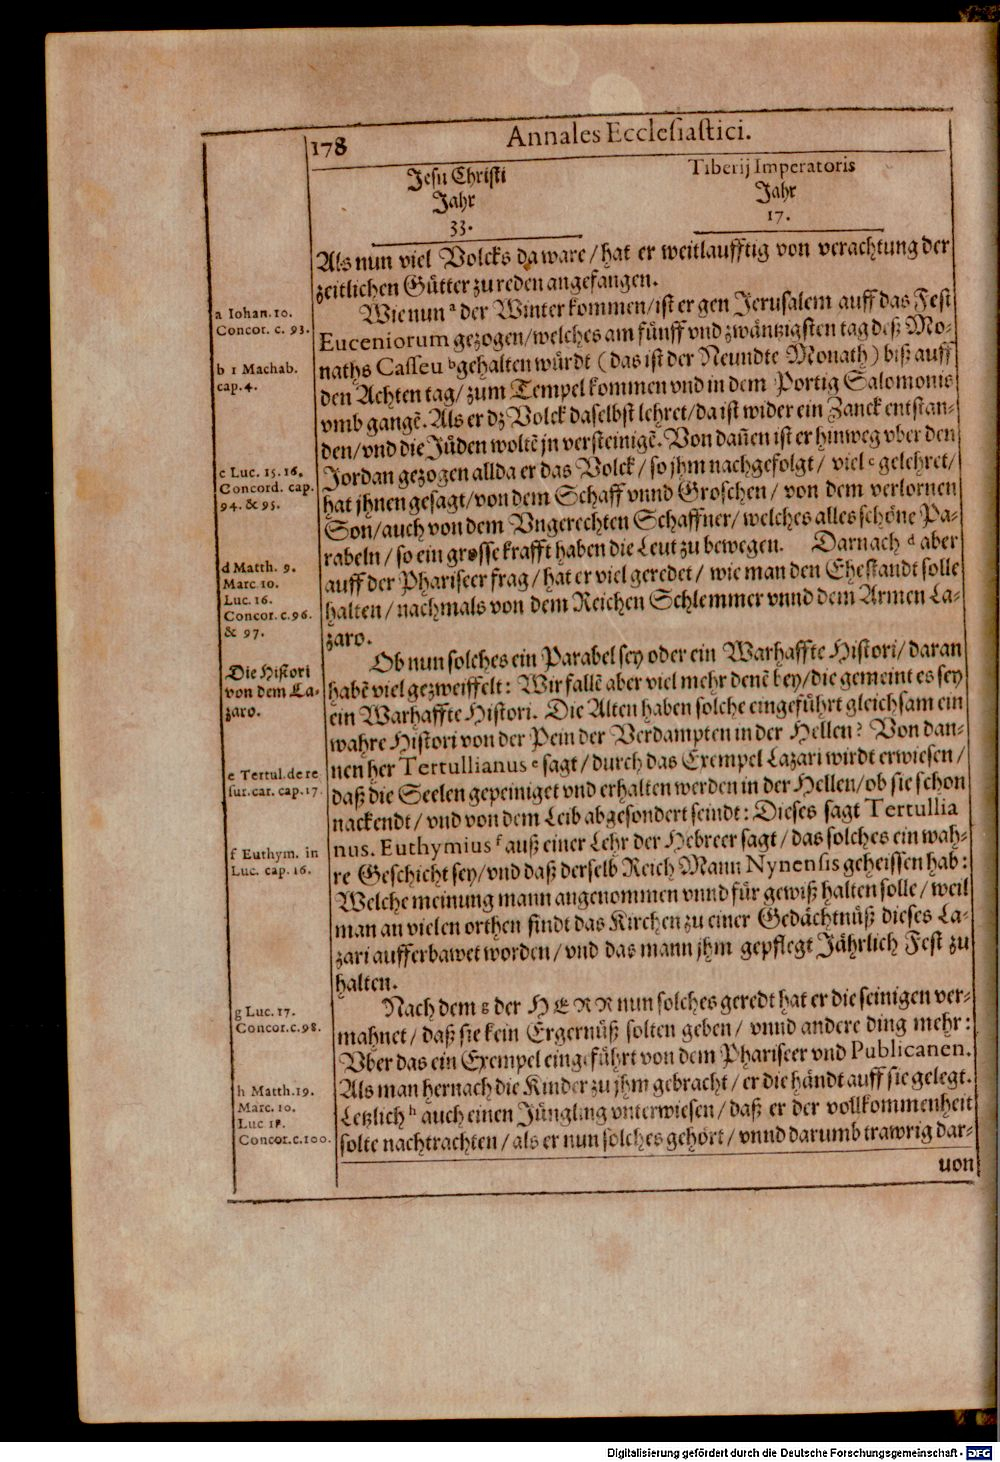 178
Annales Ecclesiastici.
Jesu Christi
Jahr
33.
Tiberij Imperatoris
Jahr
17.
Als nun viel Volcks da ware / hat er weitlaufftig von verachtung der
zeitlichen Gütter zu reden angefangen.
a Iohan. 10.
Concor. c. 93.
Wie nun ᵃ der Winter kommen / ist er gen Jerusalem auff das Fest
Euceniorum gezogen / welches am fünff vnd zwäntzigsten tag deß Mo-
b 1 Machab.
cap. 4.
naths Casleu ᵇ gehalten würdt (das ist der Neundte Monath) biß auff
den Achten tag / zum Tempel kommen vnd in dem Portig Salomonis
vmb gangē. Als er dz Volck daselbst lehret / da ist wider ein Zanck entstan-
den / vnd die Jüden woltē jn versteinigē. Von dañen ist er hinweg vber den
c Luc. 15. 16.
Concord. cap.
94. & 95.
Jordan gezogen allda er das Volck / so jhm nachgefolgt / viel ᶜ gelehret /
hat jhnen gesagt / von dem Schaff vnnd Groschen / von dem verlornen
Son / auch von dem Vngerechten Schaffner / welches alles schöne Pa-
rabeln / so ein grosse krafft haben die Leut zu bewegen. Darnach ᵈ aber
d Matth. 9.
Marc. 10.
Luc. 16.
Concor. c. 96.
& 97.
auff der Phariseer frag / hat er viel geredet / wie man den Ehestandt solle
halten / nachmals von dem Reichen Schlemmer vnnd dem Armen La-
zaro.
Die Histori
von dem La-
zaro.
Ob nun solches ein Parabel sey oder ein Warhaffte Histori / daran
habē viel gezweiffelt: Wir fallē aber viel mehr denē bey / die gemeint es sey
ein Warhaffte Histori. Die Alten haben solche eingeführt gleichsam ein
wahre Histori von der Pein der Verdampten in der Hellen? Von dan-
e Tertul. de re
sur. car. cap. 17.
nen her Tertullianus ᵉ sagt / durch das Exempel Lazari wirdt erwiesen /
daß die Seelen gepeiniget vnd erhalten werden in der Hellen / ob sie schon
nackendt / vnd von dem Leib abgesondert seindt: Dieses sagt Tertullia
f Euthym. in
Luc. cap. 16.
nus. Euthymius ᶠ auß einer Lehr der Hebreer sagt / das solches ein wah-
re Geschicht sey / vnd daß derselb Reich Mann Nynensis geheissen hab:
Welche meinung mann angenommen vnnd für gewiß halten solle / weil
man an vielen orthen findt das Kirchen zu einer Gedächtnüß dieses La-
zari aufferbawet worden / vnd das mann jhm gepflegt Jährlich Fest zu
halten.
g Luc. 17.
Concor. c. 98.
Nach dem g der HERR nun solches geredt hat er die seinigen ver-
mahnet / daß sie kein Ergernüß solten geben / vnnd andere ding mehr:
Vber das ein Exempel eingeführt von dem Phariseer vnd Publicanen.
h Matth. 19.
Marc. 10.
Luc 18.
Concor. c. 100.
Als man hernach die Kinder zu jhm gebracht / er die händt auff sie gelegt.
Letzlich ʰ auch einen Jüngling vnterwiesen / daß er der vollkommenheit
solte nachtrachten / als er nun solches gehört / vnnd darumb trawrig dar-
uon
Digitalisierung gefördert durch die Deutsche Forschungsgemeinschaft - DFG